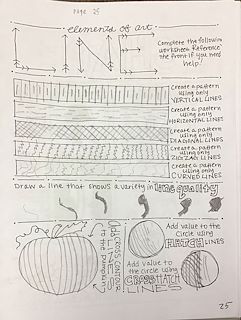 Page 25
elements of art
Complete the following
worksheet. Reference
the front if you need
help!
Create a pattern
using only
VERTICAL LINES
Create a pattern
using only
HORIZONTAL LINES
Create a pattern
using only
DIAGONAL LINES
Create a pattern
using only
ZIGZAG LINES
Create a pattern
using only
CURVED LINES
Draw a line that shows a variety in line quality
Add CROSS CONTOUR
LINES
to the pumpkin
Add value to
the circle using
HATCH LINES
Add value to
the circle using
CROSSHATCH
LINES
25